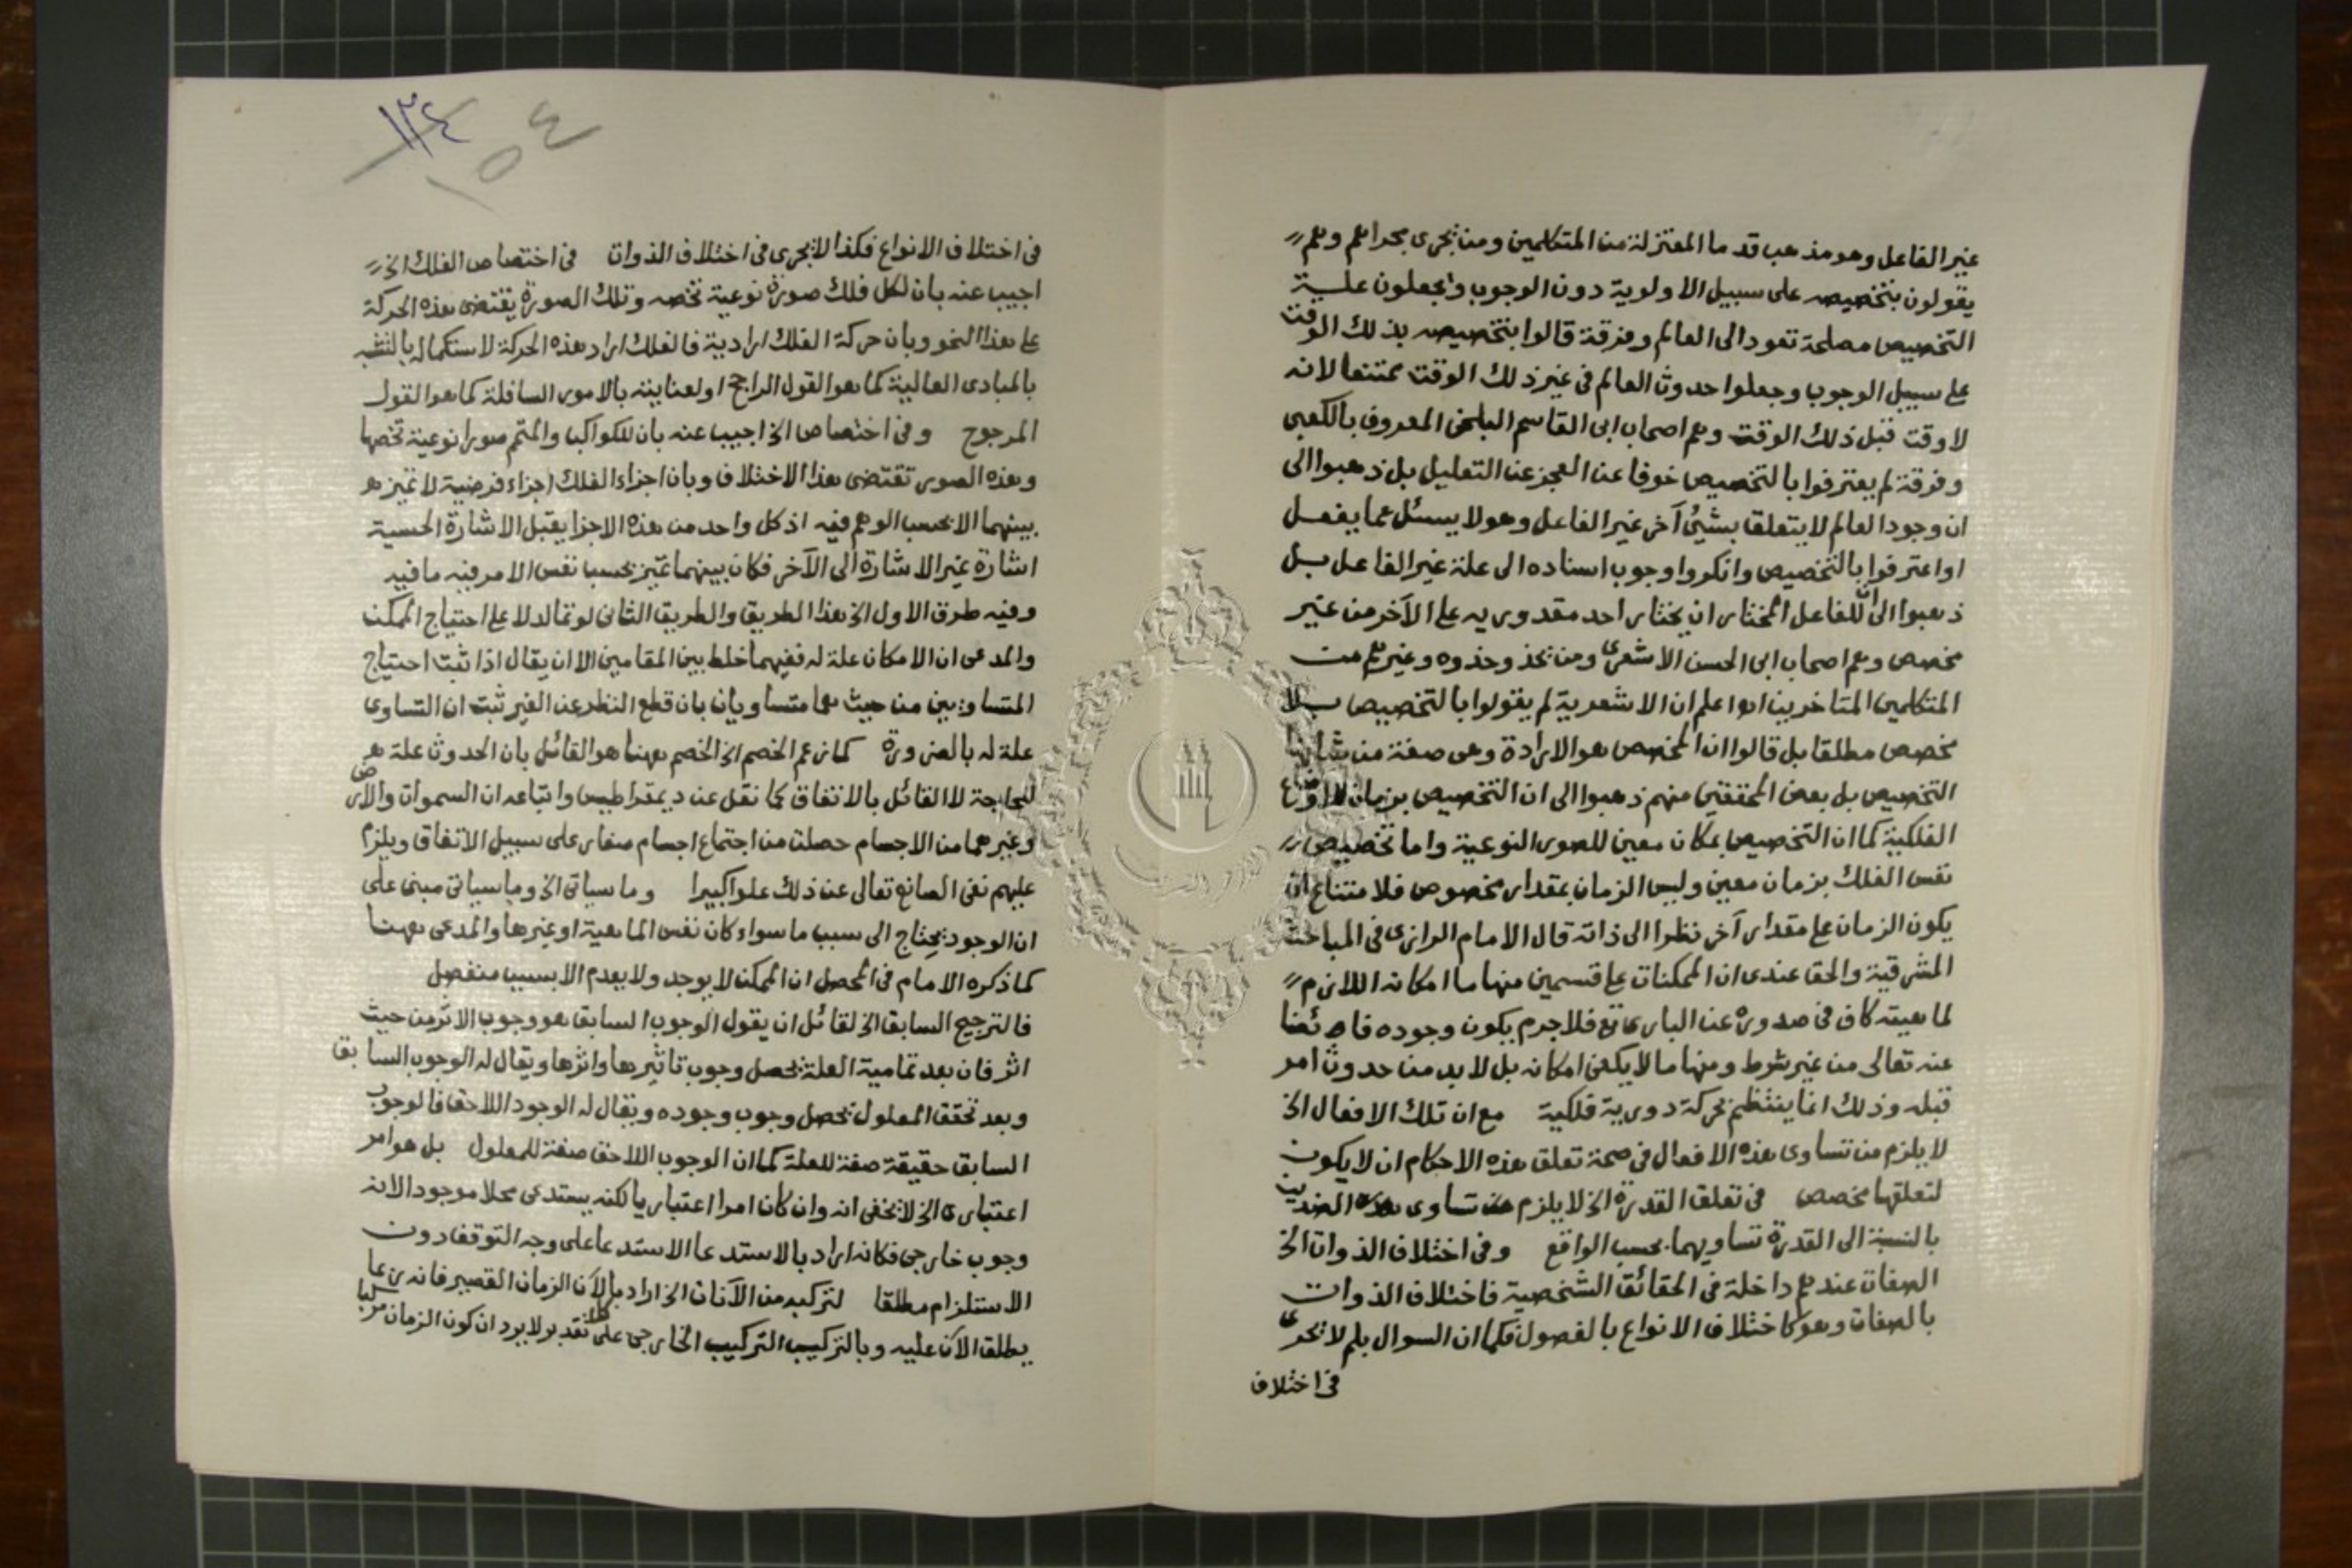 غير الفاعل وهو مذهب قدما المعتزلة من المتكلمين ومن يجرى مجراهم وهم
يقولون بتخصيصه على سبيل الاولوية دون الوجوب ويجعلون علـــة
التخصيص مصلحة تعود الى العالم وفرقة قالوا بتخصيصه بذلك الوقت
على سبيل الوجوب وجعلوا حدوث العالم في غير ذلك الوقت ممتنعا لانه
لا وقت قبل ذلك الوقت وهم اصحاب ابى القاسم البلخى المعروف بالكعبى
وفرقة لم يعترفوا بالتخصيص خوفا عن العجز عن التعليل بل ذهبوا الى
ان وجود العالم لا يتعلق بشئ آخر غير الفاعل وهو لا يسئل عما يفعــل
او اعترفوا بالتخصيص وانكروا وجوب اسناده الى علة غير الفاعل بــل
ذهبوا الى ان للفاعل المختار ان يختار احد مقدوريه على الآخر من غير
مخصص وهم اصحاب ابى الحسن الاشعرى ومن يحذ وحذوه وغيرهم من
المتكلمين المتاخرين اعلم ان الاشعرية لم يقولوا بالتخصيص بــلا
مخصص مطلقا بل قالوا ان المخصص هو الارادة وهى صفة من شانها
التخصيص بل بعض المحققين منهم ذهبوا الى ان التخصيص بزمان للاوضاع
الفلكية كما ان التخصيص بمكان معين للصور النوعية واما تخصيص
نفس الفلك بزمان معين وليس الزمان بمقدار مخصوص فلامتناع ان
يكون الزمان على مقدار آخر نظرا الى ذاته قال الامام الرازى فى المباحث
المشرقية والحق عندى ان الممكنات على قسمين منها ما امكانه اللازم
لماهيته كاف في صدوره عن البارى تع فلا جرم يكون وجوده فائضا
عنه تعالى من غير شرط ومنها ما لا يكفى امكانه بل لا بد من حدوث امر
قبله وذلك انما ينتظم بحركة دورية فلكية مع ان تلك الافعال الخ
لا يلزم من تساوى هذه الافعال في صحة تعلق هذه الاحكام ان لا يكون
لتعلقها مخصص فى تعلق القدرة الخ لا يلزم من تساوى هذه الضدين
بالنسبة الى القدرة تساويهما بحسب الواقع وفى اختلاف الذوات الخ
الصفات عندهم داخلة في الحقائق الشخصية فاختلاف الذوات
بالصفات وهو كاختلاف الانواع بالفصول فكما ان السوال بلم لا يجرى
فى اختلاف
١٣٤
١٥٤
فى اختلاف الانواع فكذا لا يجرى في اختلاف الذوات فى اختصاص الفلك الخ
اجيب عنه بان لكل فلك صورة نوعية تخصه وتلك الصورة يقتضى هذه الحركة
على هذا النحو وبان حركة الفلك ارادية فالفلك اراد هذه الحركة لاستكماله بالتشبه
بالمبادى العالية كما هو القول الراجح او لعنايته بالامور السافلة كما هو القول
المرجوح وفى اختصاص الخ اجيب عنه بان للكواكب والمتمم صورا نوعية تخصها
وهذه الصور تقتضى هذا الاختلاف وبان اجزاء الفلك اجزاء فرضية لا تميز
بينهما الا بحسب الوهم فيه اذ كل واحد من هذه الاجزا يقبل الاشارة الحسية
اشارة غير الاشارة الى الآخر فكان بينهما تميز بحسب نفس الامر فيه ما فيه
وفيه طرق الاول الخ هذا الطريق والطريق الثانى لو تما لدلا على احتياج الممكن
والمدعى ان الامكان علة له ففيهما خلط بين المقامين الا ان يقال اذا ثبت احتياج
المتساويين من حيث هما متساويان بان قطع النظر عن الغير ثبت ان التساوى
علة له بالضرورة كما زعم الخصم الخ الخصم ههنا هو القائل بان الحدوث علة
للحاجة لا القائل بالاتفاق كما نقل عن ديمقراطيس واتباعه ان السموات والارض
وغيرهما من الاجسام حصلت من اجتماع اجسام صغار على سبيل الاتفاق ويلزم
عليهم نفى الصانع تعالى عن ذلك علوا كبيرا وما سياتى الخ وما سياتى مبنى على
ان الوجود يحتاج الى سبب ما سواء كان نفس الماهية او غيرها والمدعى ههنا
كما ذكره الامام فى المحصل ان الممكن لا يوجد ولا يعدم الا بسبب منفصل
فالترجيح السابق الخ لقائل ان يقول الوجوب السابق هو وجوب الاثر من حيث
اثر فان بعد تمامية العلة يحصل وجوب تاثيرها واثرها ويقال له الوجوب السابق
وبعد تحقق المعلول يحصل وجوب وجوده ويقال له الوجود اللاحق فالوجوب
السابق حقيقة صفة للعلة كما ان الوجوب اللاحق صفة للمعلول بل هو امر
اعتبارى الخ لا يخفى انه وان كان امرا اعتباريا لكنه يستدعى محلا موجودا لانه
وجوب خارجى فكانه اراد بالاستدعا الاستدعا على وجه التوقف دون
الاستلزام مطلقا لتركبه من الآنات الخ اراد بالآن الزمان القصير فانه ربما
يطلق الآن عليه وبالتركيب التركيب الخارجى على تقدير لا يرد ان كون الزمان مركبا